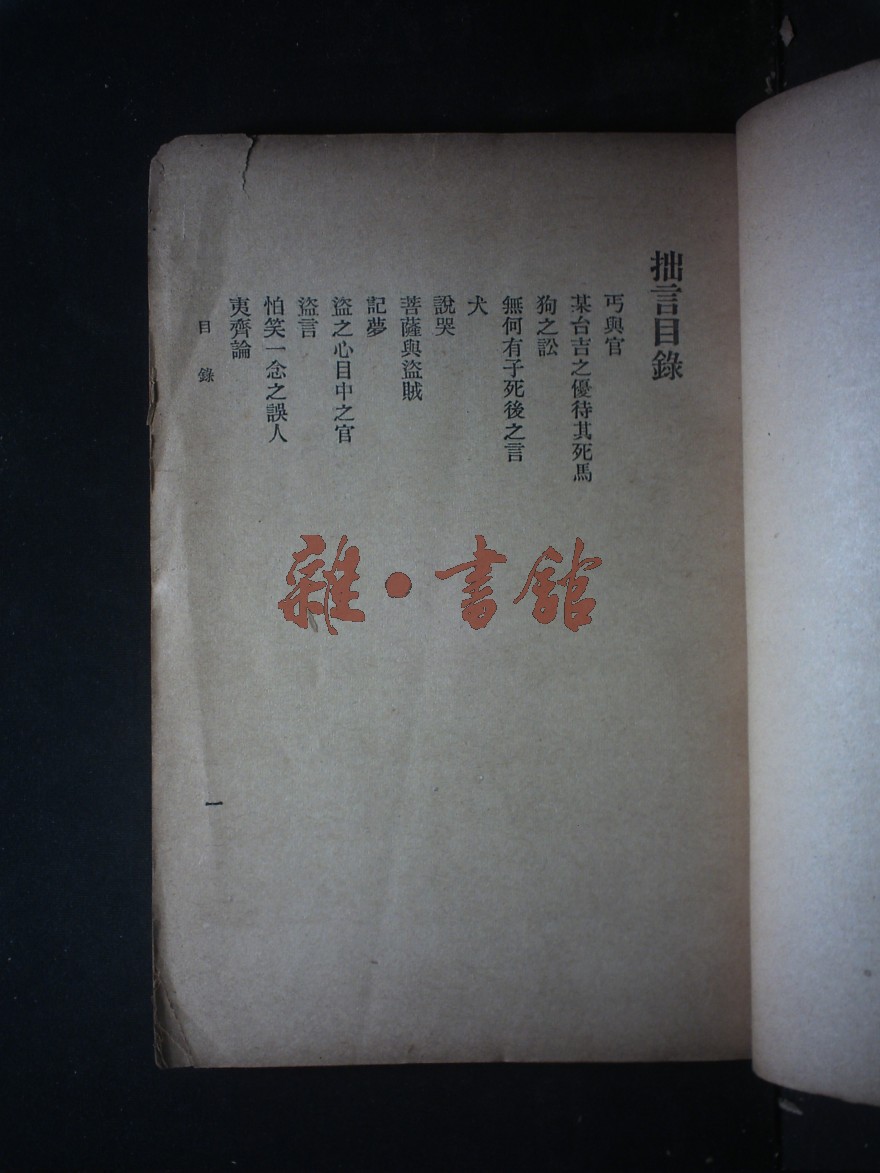 拙言目錄
丐與官
某台吉之優待其死馬
狗之訟
無何有子死後之言
犬
說哭
菩薩與盜賊
記夢
盜之心目中之官
盜言
怕笑一念之誤人
夷齊論
目錄
一
雜·書館